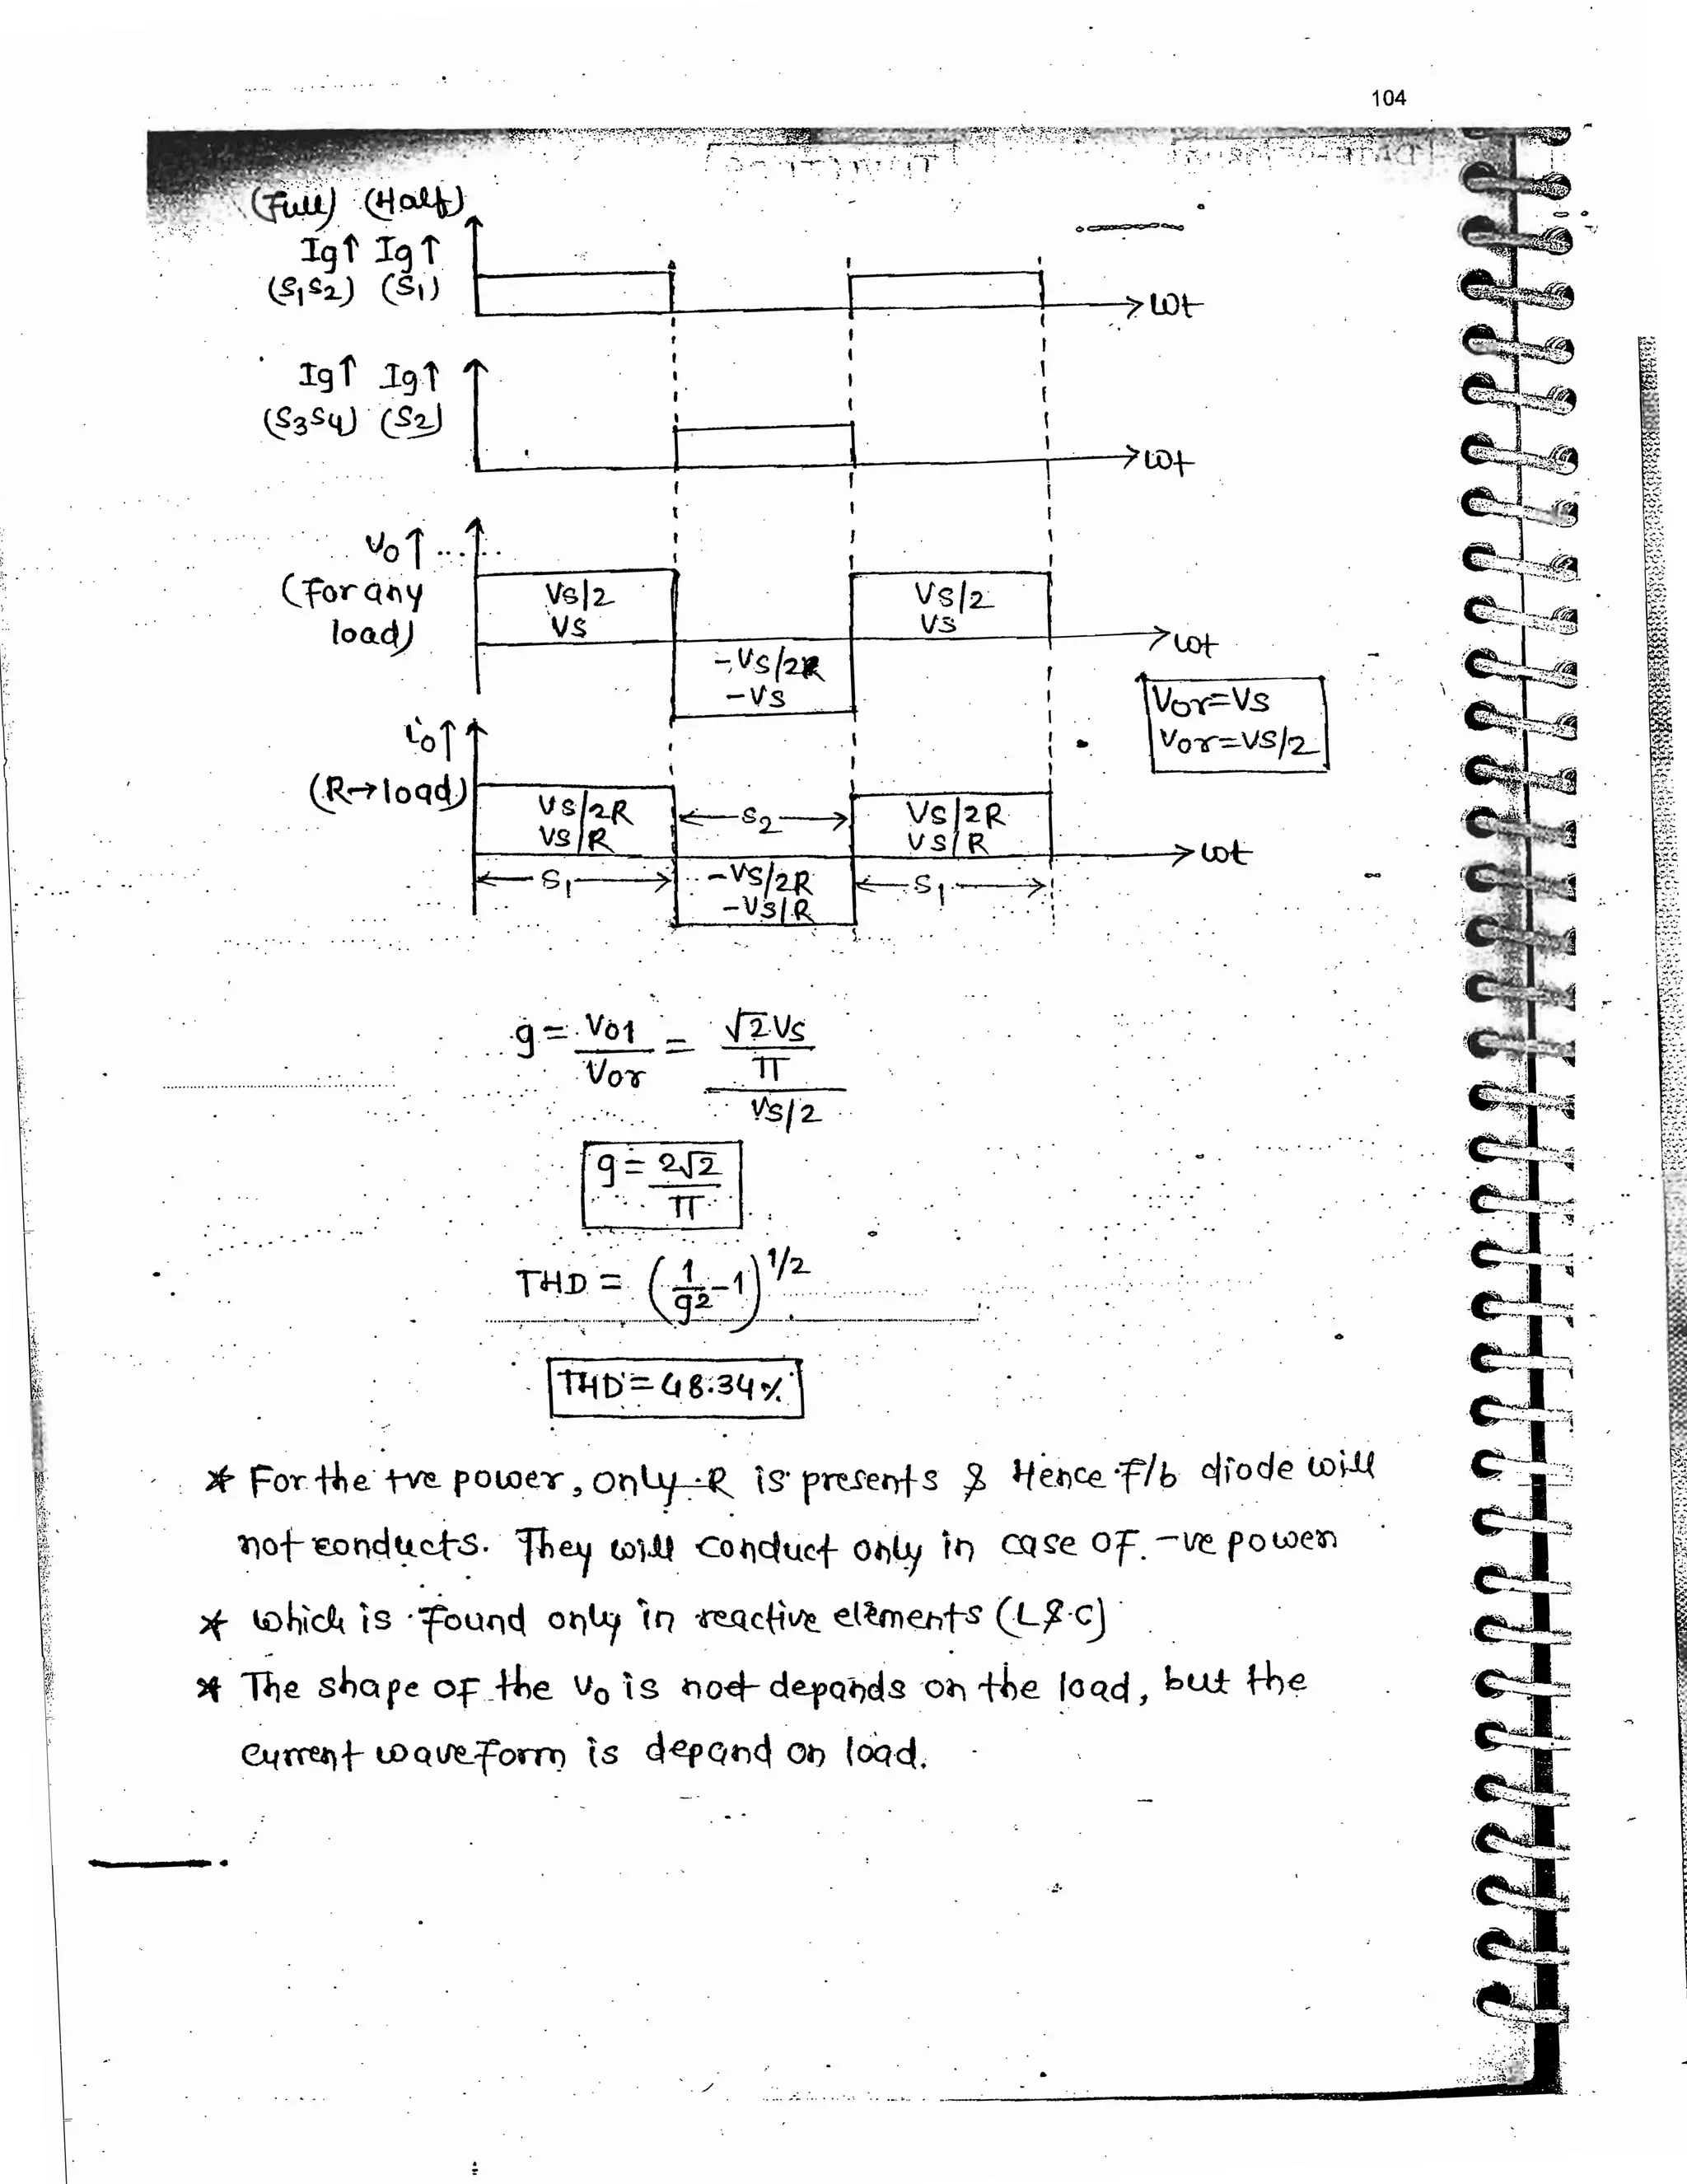 104
(Full) (Half)
Ig↑ Ig↑
(S1S2) (S1)
ωt
Ig↑ Ig↑
(S3S4) (S2)
ωt
vo↑
(For any
load)
Vs/2
Vs
Vs/2
Vs
ωt
-Vs/2R
-Vs
Vor=Vs
Vor=Vs/2
io↑
(R→load)
Vs/2R
Vs/R
S2
Vs/2R
Vs/R
ωt
S1
-Vs/2R
-Vs/R
S1
g = Vo1/Vor = (√2Vs/π)/(Vs/2)
g = 2√2/π
THD = (1/g2 - 1)^1/2
THD = 48.34%
* For the +ve power, only R is presents & Hence F/b diode will
not conducts. They will conduct only in case of -ve power
* which is found only in reactive elements (L & C)
* The shape of the Vo is not depands on the load, but the
current waveform is depand on load.